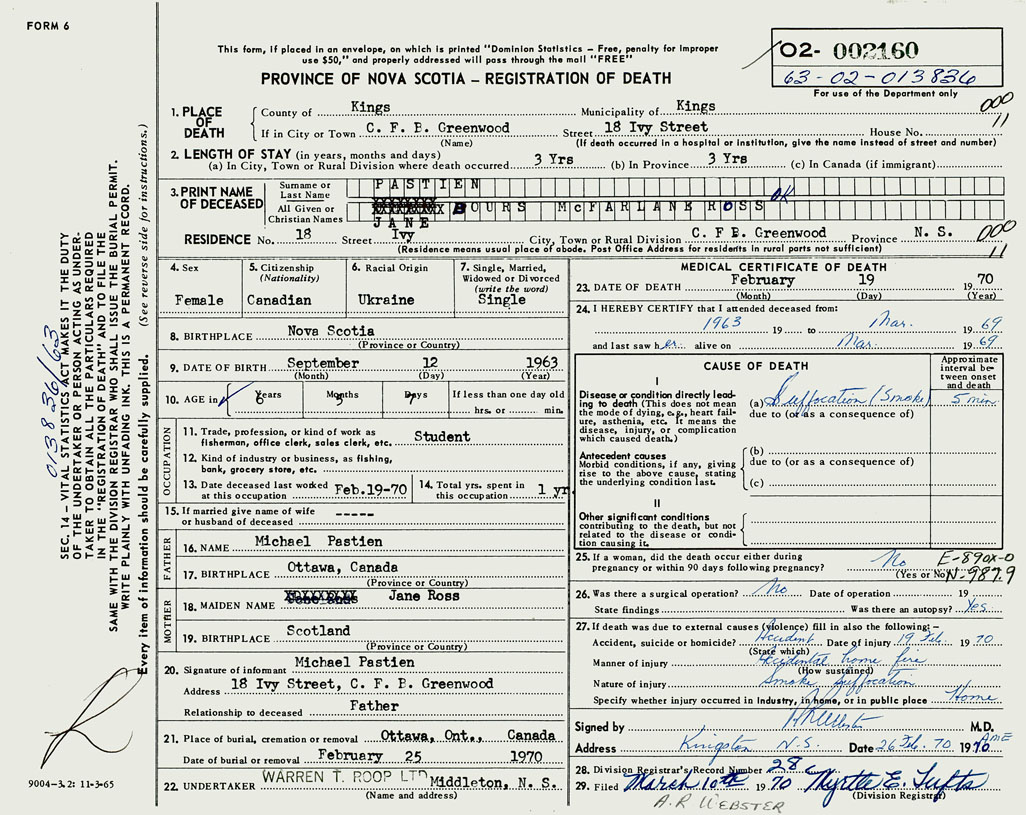 FORM 6
This form, if placed in an envelope, on which is printed "Dominion Statistics – Free, penalty for improper
use $50," and properly addressed will pass through the mail "FREE"
PROVINCE OF NOVA SCOTIA – REGISTRATION OF DEATH
02- 002160
63-02-013836
For use of the Department only
1. PLACE OF DEATH
County of Kings Municipality of Kings
000
11
If in City or Town C. F. B. Greenwood Street 18 Ivy Street House No.
(Name) (If death occurred in a hospital or institution, give the name instead of street and number)
2. LENGTH OF STAY (in years, months and days)
(a) In City, Town or Rural Division where death occurred 3 Yrs (b) In Province 3 Yrs (c) In Canada (if immigrant)
3. PRINT NAME OF DECEASED
Surname or Last Name PASTIEN
OK
All Given or Christian Names BOURS McFARLANE ROSS
JANE
RESIDENCE No. 18 Street Ivy City, Town or Rural Division C. F B. Greenwood Province N. S.
000
11
(Residence means usual place of abode. Post Office Address for residents in rural parts not sufficient)
4. Sex
Female
5. Citizenship
(Nationality)
Canadian
6. Racial Origin
Ukraine
7. Single, Married,
Widowed or Divorced
(write the word)
Single
8. BIRTHPLACE Nova Scotia
(Province or Country)
9. DATE OF BIRTH September 12 1963
(Month) (Day) (Year)
10. AGE in Years Months Days If less than one day old
hrs. or min.
OCCUPATION
11. Trade, profession, or kind of work as
fisherman, office clerk, sales clerk, etc. Student
12. Kind of industry or business, as fishing,
bank, grocery store, etc.
13. Date deceased last worked
at this occupation Feb.19-70
14. Total yrs. spent in
this occupation 1 yr
15. If married give name of wife
or husband of deceased -----
FATHER
16. NAME Michael Pastien
17. BIRTHPLACE Ottawa, Canada
(Province or Country)
MOTHER
18. MAIDEN NAME Jane Ross
19. BIRTHPLACE Scotland
(Province or Country)
20. Signature of informant Michael Pastien
Address 18 Ivy Street, C. F. B. Greenwood
Relationship to deceased Father
21. Place of burial, cremation or removal Ottawa, Ont., Canada
Date of burial or removal February 25 1970
22. UNDERTAKER WARREN T. ROOP LTD Middleton, N. S.
(Name and address)
MEDICAL CERTIFICATE OF DEATH
23. DATE OF DEATH February 19 1970
(Month) (Day) (Year)
24. I HEREBY CERTIFY that I attended deceased from:
1963 19 to Mar. 1969
and last saw her alive on Mar. 1969
CAUSE OF DEATH
Approximate
interval be-
tween onset
and death
I
Disease or condition directly lead-
ing to death (This does not mean
the mode of dying, e.g., heart fail-
ure, asthenia, etc. It means the
disease, injury, or complication
which caused death.)
(a) Suffocation (Smoke) 5 min
due to (or as a consequence of)
Antecedent causes
Morbid conditions, if any, giving
rise to the above cause, stating
the underlying condition last.
(b)
due to (or as a consequence of)
(c)
II
Other significant conditions
contributing to the death, but not
related to the disease or condi-
tion causing it.
25. If a woman, did the death occur either during
pregnancy or within 90 days following pregnancy? No
(Yes or No)
E-890X-0
N-987.9
26. Was there a surgical operation? No Date of operation 19
State findings Was there an autopsy? Yes
27. If death was due to external causes (violence) fill in also the following:–
Accident, suicide or homicide? Accident Date of injury 19 Feb. 1970
(State which)
Manner of injury Accidental home fire
(How sustained)
Nature of injury Smoke suffocation
Specify whether injury occurred in industry, in home, or in public place Home
Signed by M.D.
AME
Address Kingston N.S. Date 26 Feb. 70 1970
28. Division Registrar's Record Number 28
29. Filed March 10th 1970 Myrtle E. Tufts
(Division Registrar)
A.R WEBSTER
013836/63
SEC. 14 – VITAL STATISTICS ACT MAKES IT THE DUTY
OF THE UNDERTAKER OR PERSON ACTING AS UNDER-
TAKER TO OBTAIN ALL THE PARTICULARS REQUIRED
IN THE "REGISTRATION OF DEATH" AND TO FILE THE
SAME WITH THE DIVISION REGISTRAR WHO SHALL ISSUE THE BURIAL PERMIT.
WRITE PLAINLY WITH UNFADING INK. THIS IS A PERMANENT RECORD.
Every item of information should be carefully supplied. (See reverse side for instructions.)
9004-3.2: 11-3-65